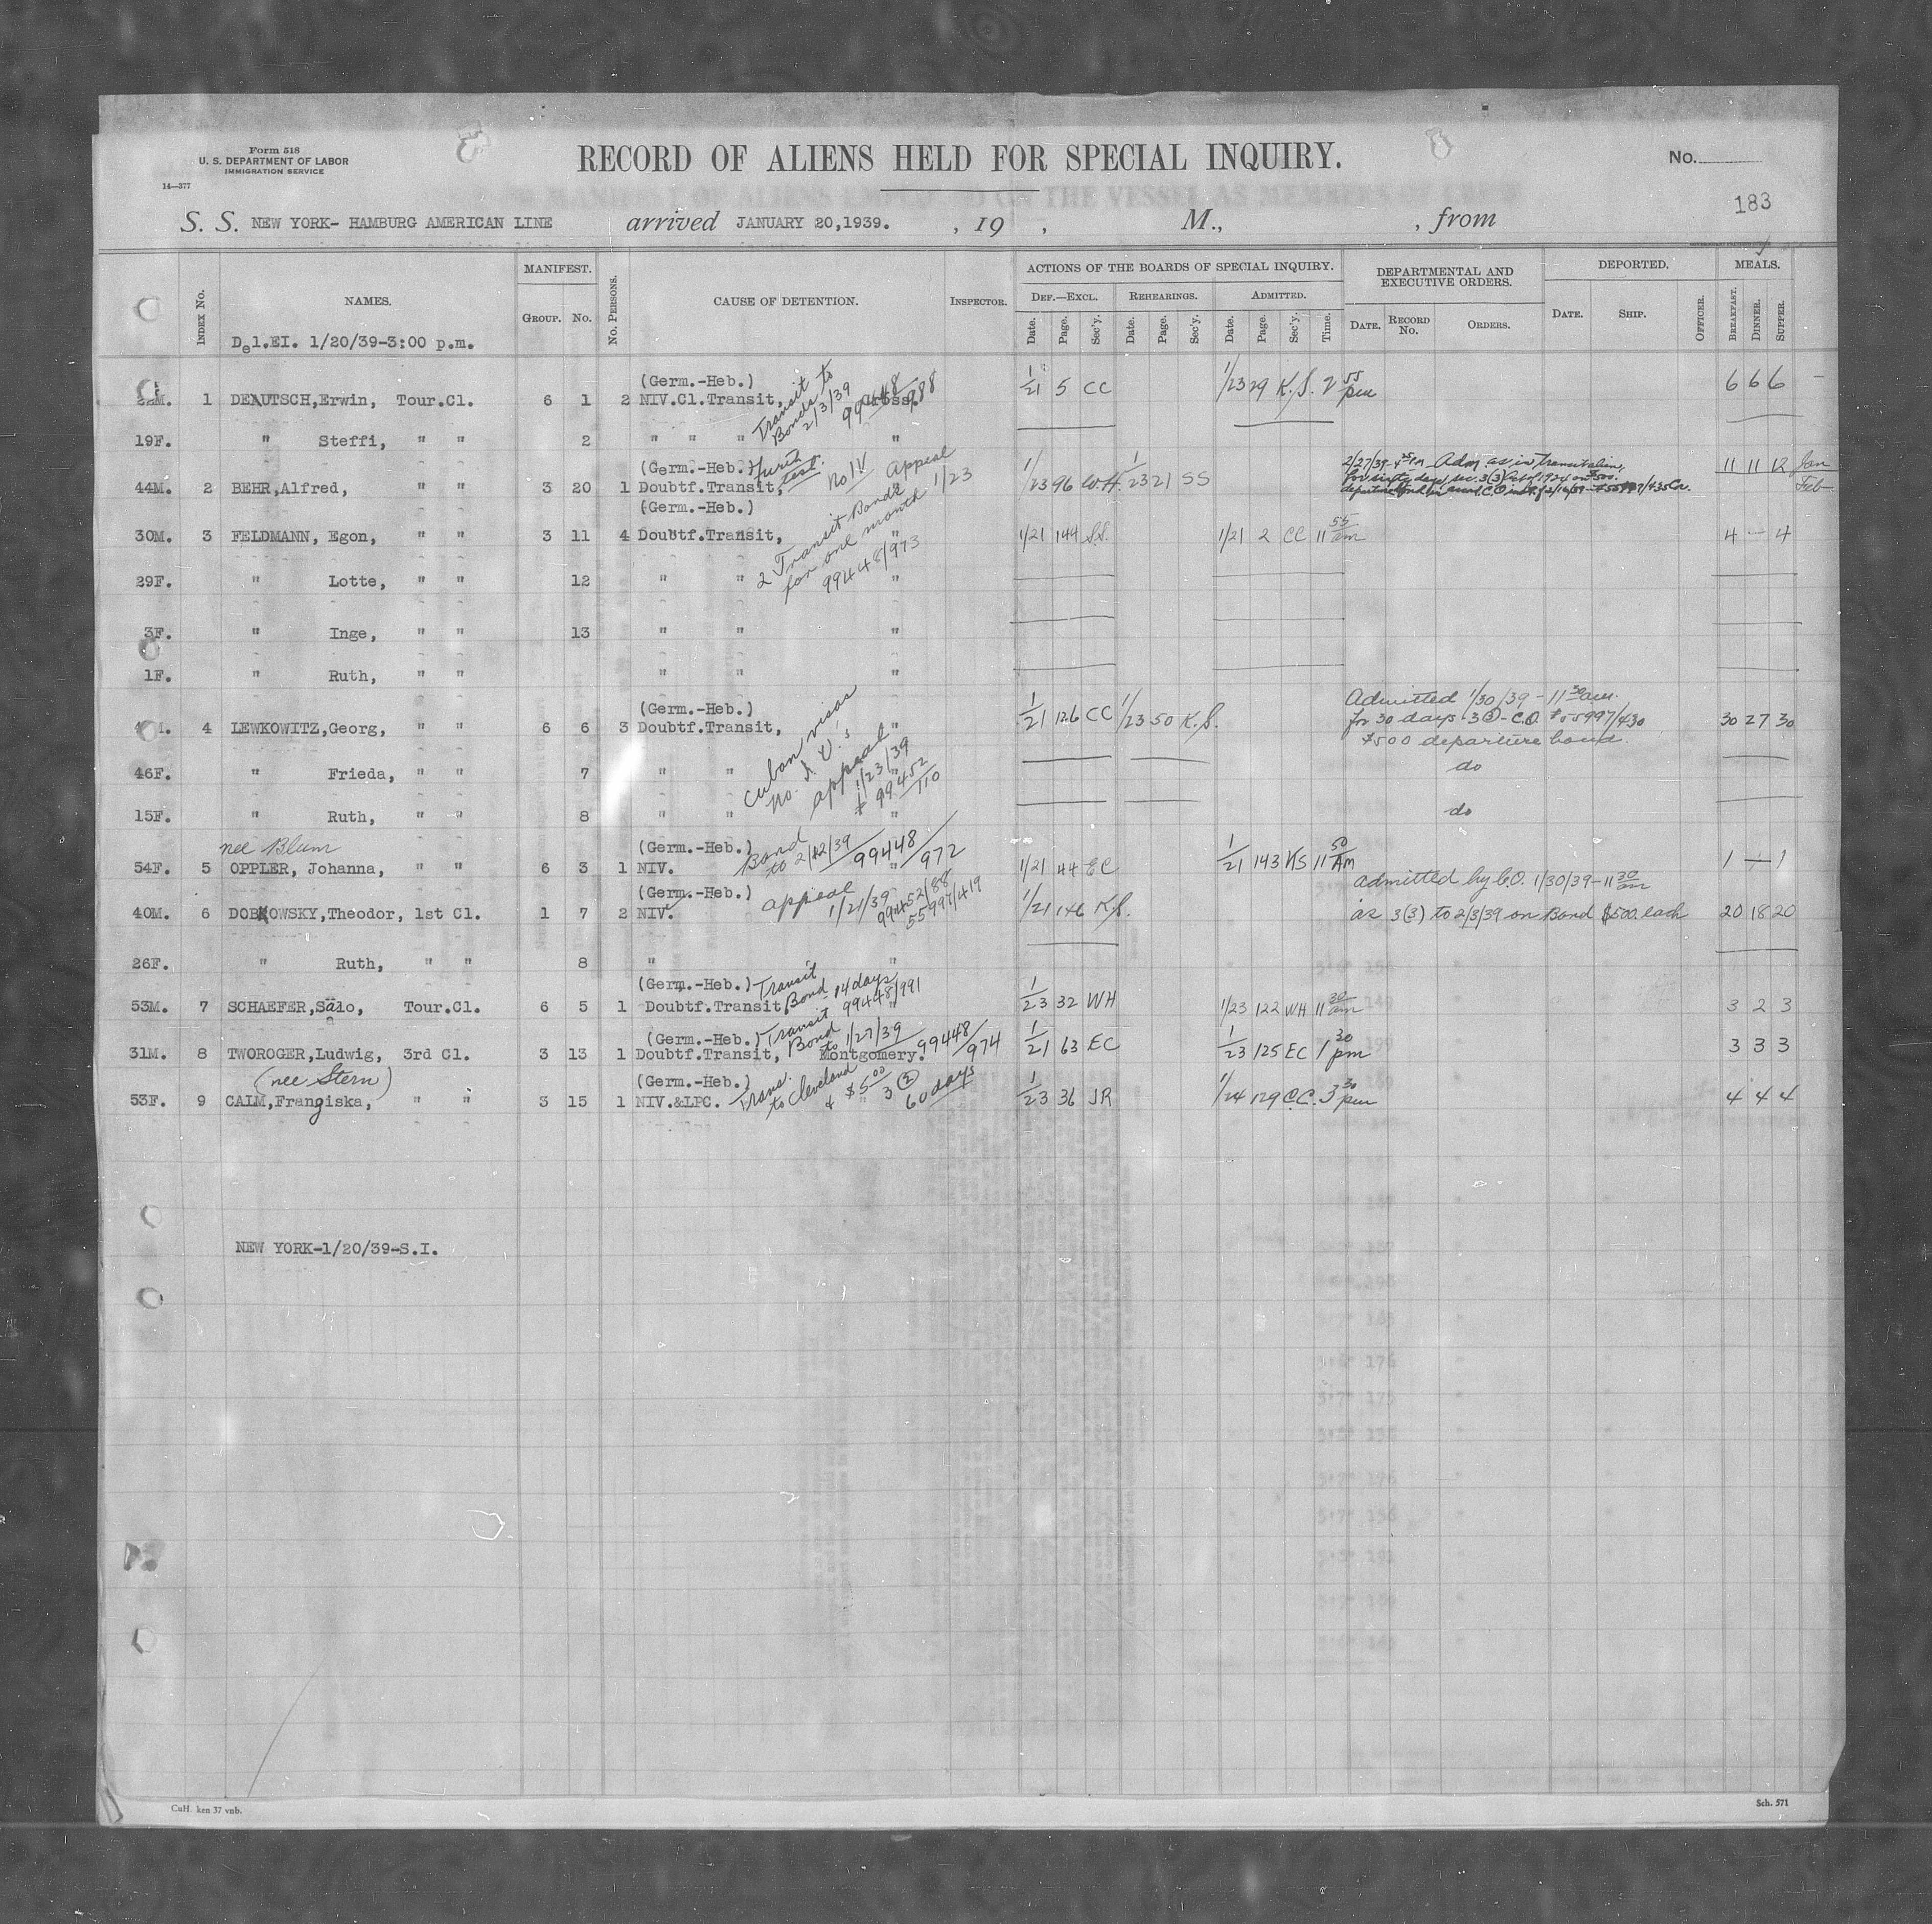 Form 518
U. S. DEPARTMENT OF LABOR
IMMIGRATION SERVICE
14—377
RECORD OF ALIENS HELD FOR SPECIAL INQUIRY.
No.
183
S. S. NEW YORK- HAMBURG AMERICAN LINE arrived JANUARY 20,1939. , 19 , M., , from
INDEX No. NAMES. MANIFEST. GROUP. No. No. PERSONS. CAUSE OF DETENTION. INSPECTOR. ACTIONS OF THE BOARDS OF SPECIAL INQUIRY. DEPARTMENTAL AND EXECUTIVE ORDERS. DEPORTED. MEALS.
DEF.—EXCL. REHEARINGS. ADMITTED.
Date. Page. Sec'y. Date. Page. Sec'y. Date. Page. Sec'y. Time. DATE. RECORD No. ORDERS. DATE. SHIP. OFFICER. BREAKFAST. DINNER. SUPPER.
Del.EI. 1/20/39-3:00 p.m.
(Germ.-Heb.) Transit to Bonds 2/3/39 99448/988
M. 1 DEUTSCH,Erwin, Tour.Cl. 6 1 2 NIV.Cl.Transit, Gross. 1/21 5 CC 1/23 29 K.S. 2 55 pm 6 6 6 -
19F. " Steffi, " " 2 " " " "
(Germ.-Heb.) No IV Appeal 1/23
44M. 2 BEHR,Alfred, " " 3 20 1 Doubtf.Transit, 1/23 96 W.H. 1/23 21 SS 2/27/39- 4 25 PM Adm. as in transit alien, for sixty days sec. 3(3) Act of 1924 on $500. 11 11 12 Jan Feb
(Germ.-Heb.) 2 Transit Bonds for one month 99448/973
30M. 3 FELDMANN, Egon, " " 3 11 4 Doubtf.Transit, " 1/21 144 S.S. 1/21 2 CC 11 55 am 4 — 4
29F. " Lotte, " " 12 " " "
3F. " Inge, " " 13 " " "
1F. " Ruth, " " " " "
(Germ.-Heb.) Cuban visas no I V.'s appeal 1/23/39 99452/110
M. 4 LEWKOWITZ,Georg, " " 6 6 3 Doubtf.Transit, " 1/21 126 CC 1/23 50 K.S. Admitted 1/30/39 - 11 30 am. for 30 days - 3(3) - C.O. #55997/430 $500 departure bond. 30 27 30
46F. " Frieda, " " 7 " " " do
15F. " Ruth, " " 8 " " " do
nee Blum
(Germ.-Heb.) Bond to 2/12/39 99448/972
54F. 5 OPPLER, Johanna, " " 6 3 1 NIV. " 1/21 44 EC 1/21 143 KS 11 50 AM 1 — 1
(Germ.-Heb.) appeal 1/21/39 99452/88 55997/419
40M. 6 DOBKOWSKY,Theodor, 1st Cl. 1 7 2 NIV. 1/21 146 K.S. admitted by C.O. 1/30/39-11 30 am as 3(3) to 2/3/39 on Bond $500. each 20 18 20
26F. " Ruth, " " 8 " "
(Germ.-Heb.) Transit Bond 14 days 99448/991
53M. 7 SCHAEFER,Salo, Tour.Cl. 6 5 1 Doubtf.Transit, " 1/23 32 WH 1/23 122 WH 11 30 am 3 2 3
(Germ.-Heb.) Transit Bond to 1/27/39 99448/974
31M. 8 TWOROGER,Ludwig, 3rd Cl. 3 13 1 Doubtf.Transit, Montgomery. 1/21 63 EC 1/23 125 EC 1 30 pm 3 3 3
(nee Stern)
(Germ.-Heb.) Trans. to Cleveland & $5 00 3 (2) 60 days
53F. 9 CALM,Franziska, " " 3 15 1 NIV.&LPC. " 1/23 36 JR 1/24 129 C.C. 3 30 pm 4 4 4
NEW YORK-1/20/39-S.I.
CuH. ken 37 vnb.
Sch. 571